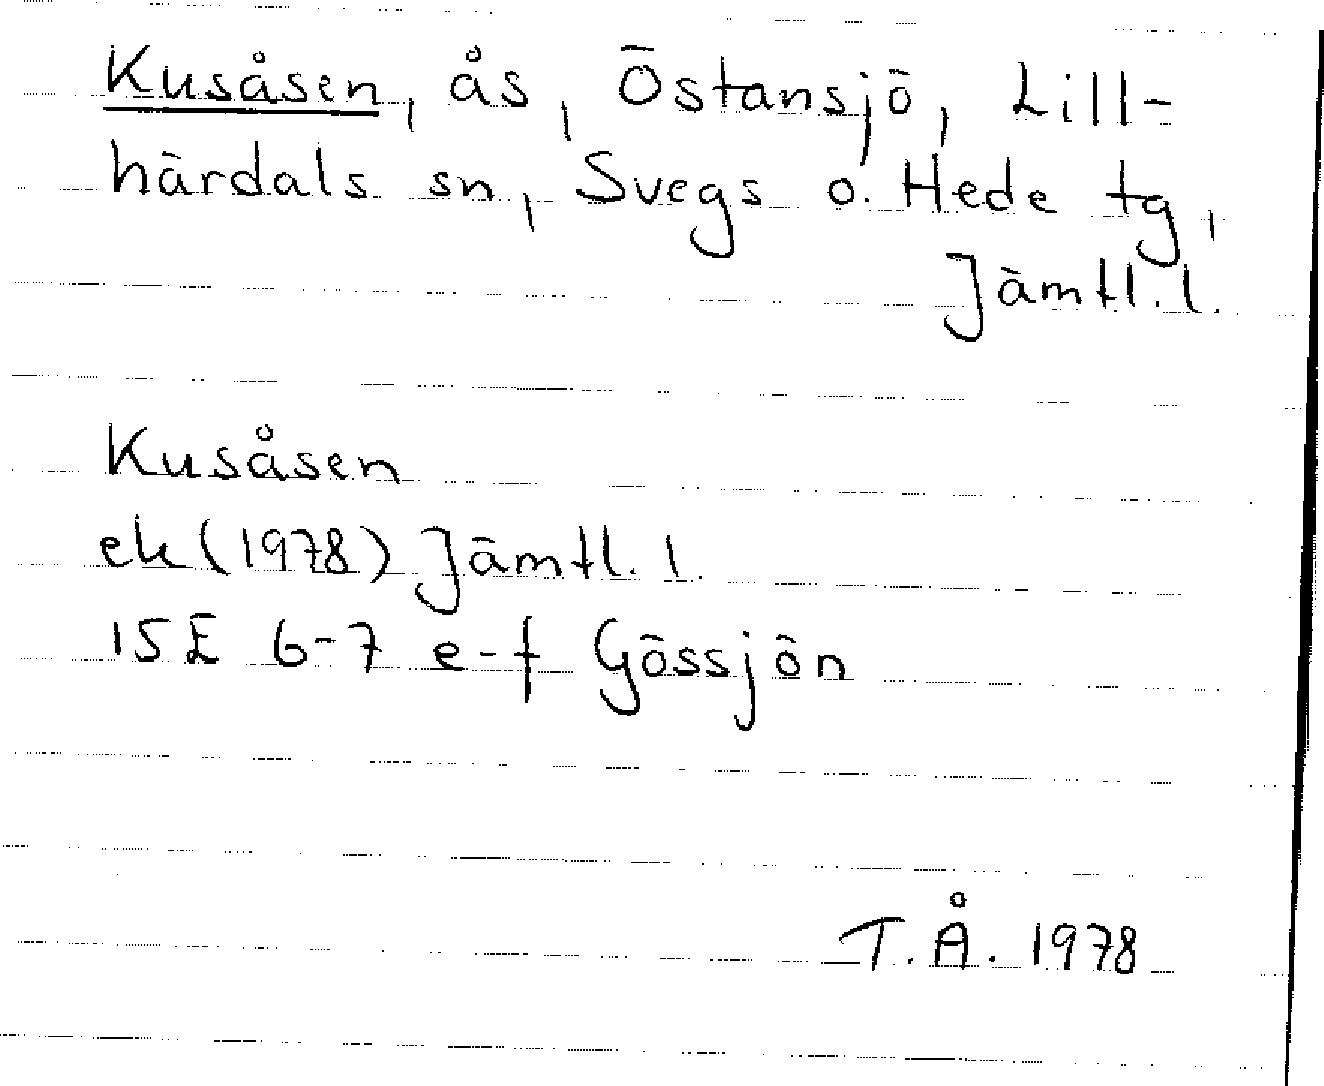 Kusåsen, ås, Östansjö, Lill-
härdals sn, Svegs o. Hede tg,
Jämtl. l.
Kusåsen
ek (1978) Jämtl. l.
15E 6-7 e-f Gössjön
T.Å. 1978